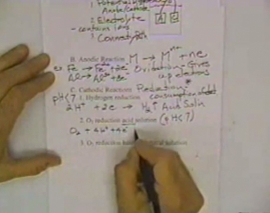 1. Potential
Anode/Cathode
2. Electrolyte
- contains ions
3. Connection
A C
B. Anodic Reaction M → M⁺ⁿ + ne
Fe → Fe⁺² + 2e⁻ Oxidation - Gives
Al → Al⁺³ + 3e⁻ up electrons
C. Cathodic Reactions Reduction -
pH<7 1. Hydrogen reduction consumption
2H⁺ + 2e → H₂↑ Acid Soln
2. O₂ reduction acid solution (pH<7)
O₂ + 4H⁺ + 4e⁻
3. O₂ reduction solution